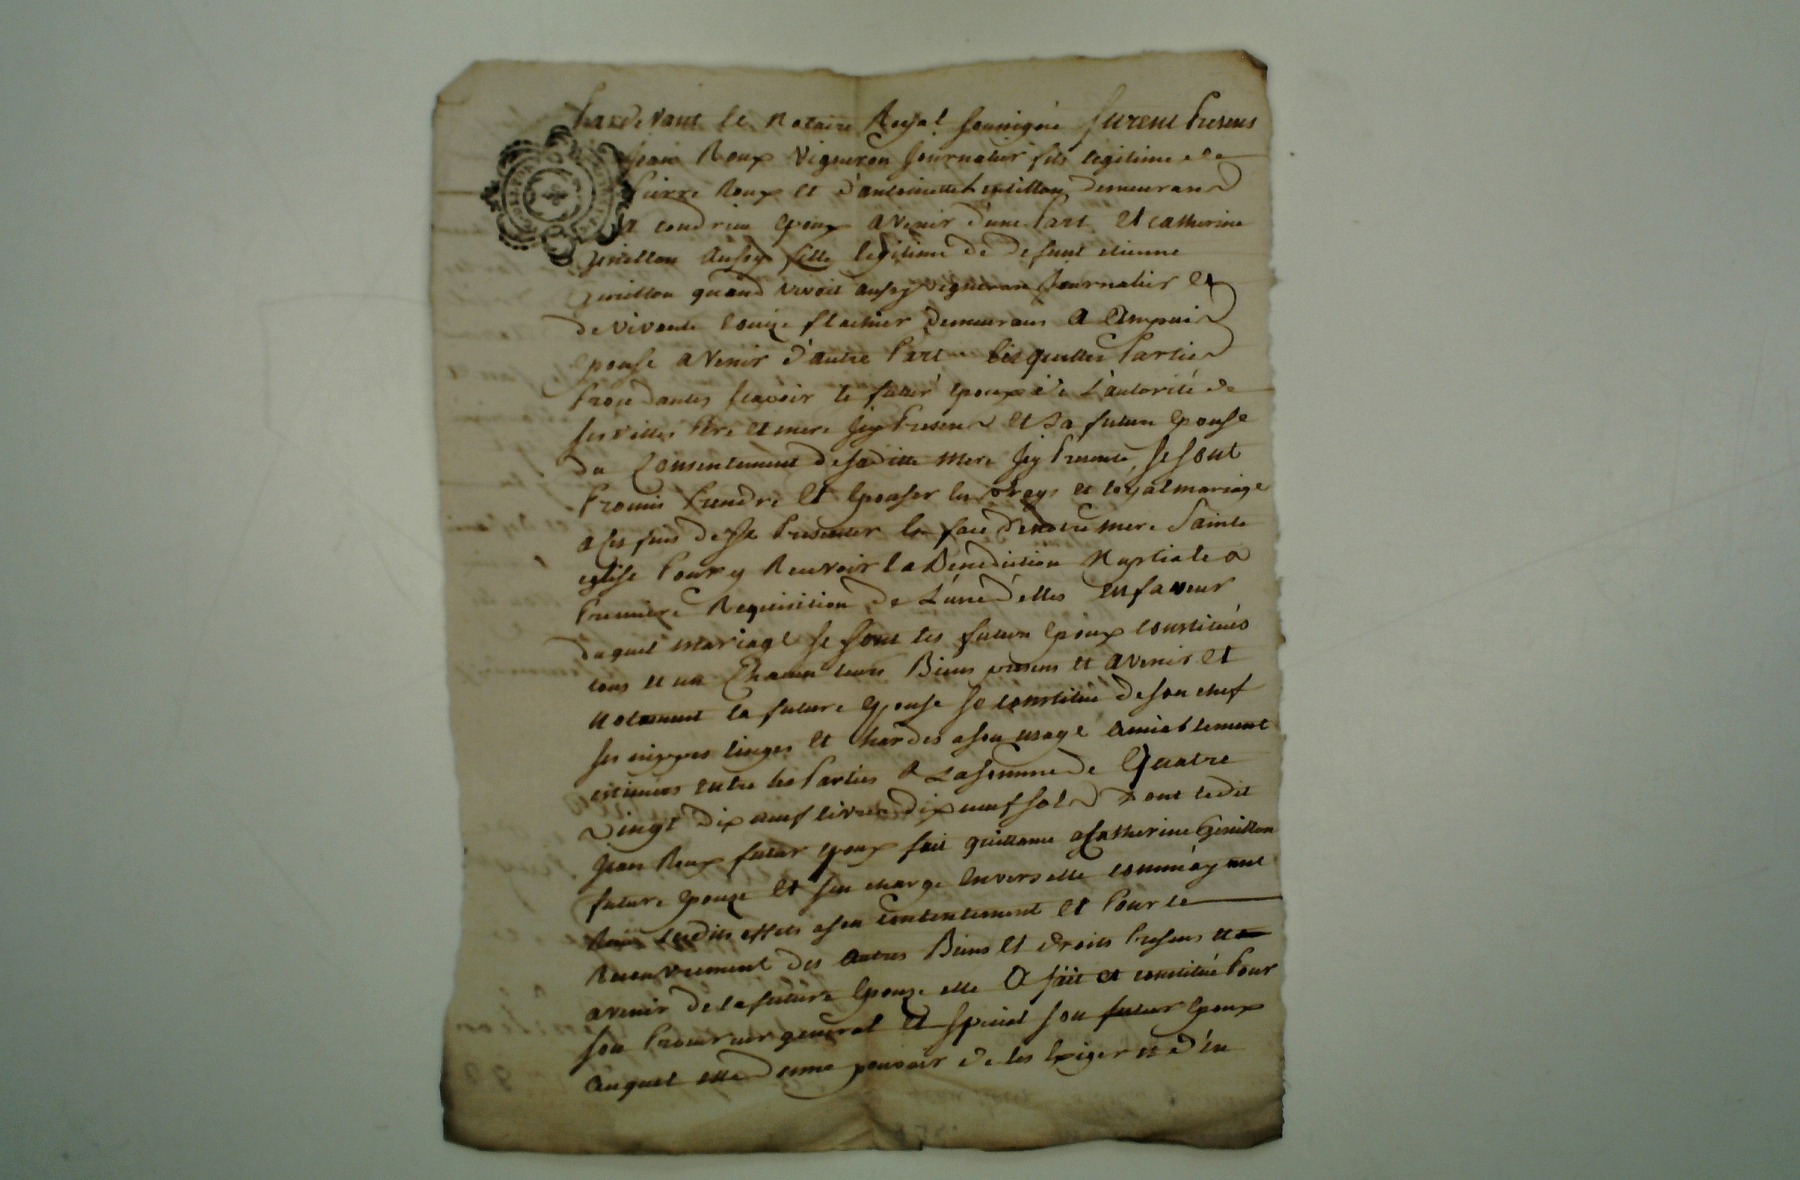 Pardevant le Notaire Royal soussigné furent Presens
Jean Roux Vigneron Journalier fils legitime de
Pierre Roux et d'antoinette demeurans
a condrieu epoux avenir d'une Part Et catherine
Genillon aussy fille legitime de defunt etienne
Genillon quand vivoit aussy vigneron Journalier et
de vivante Louize flachier demeurans a Ampuis
epouse avenir d'autre Part lesquelles Parties
Procedantes scavoir le futur epoux de L'autorité de
ses Pere et mere Icy Presens et La future epouse
du Consentement desaditte Mere Icy Presente, se sont
Promis Prendre et epouser en vrays et loyal mariage
a ces fins de se Presenter en face de notre mere Sainte
eglise Pour y Recevoir la Benediction Nuptiale a
Premiere Requisition de L'une d'elles en faveur
duquel mariage se sont les futurs epoux constitués
tous et un Chacun leurs Biens presens et avenir et
notamment la future epouse se constitue de son chef
ses nippes linges et hardes a son usage amiablement
estimées entre les Parties a La somme de Quatre
vingt dix neuf livres dix neuf sols dont ledit
Jean Roux futur epoux fait quittance a Catherine Genillon
future epouze et s'en charge envers elle comme ayant
Receu lesdits effets a son contentement et Pour le
Recouvrement des autres Biens et droits Presens et
avenir de la future epouze elle a fait et constitué Pour
son Procureur general et special son futur epoux
auquel elle donne pouvoir de les exiger et d'en